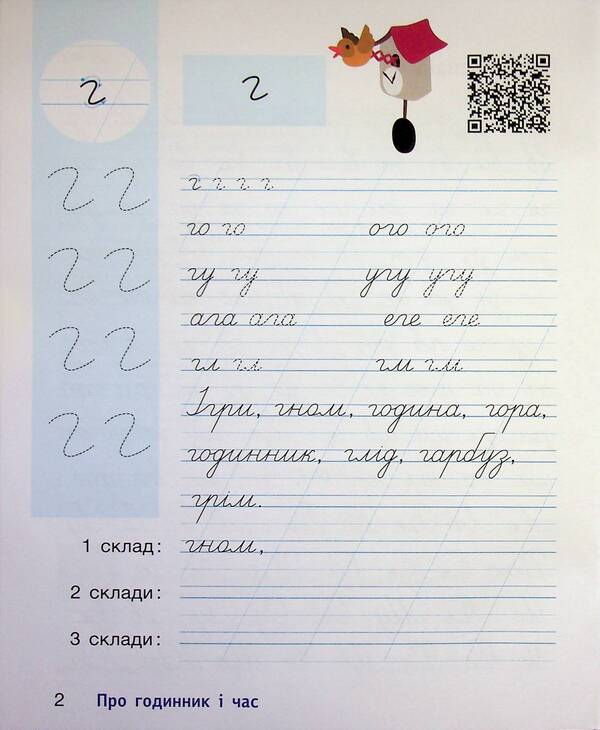 г г
г г г г г
г г го го ого ого
г г гу гу угу угу
ага ага еге еге
г г гл гл гм гм
г г Ігри, гном, година, гора,
годинник, глід, гарбуз,
грім.
1 склад: гном,
2 склади:
3 склади:
2 Про годинник і час